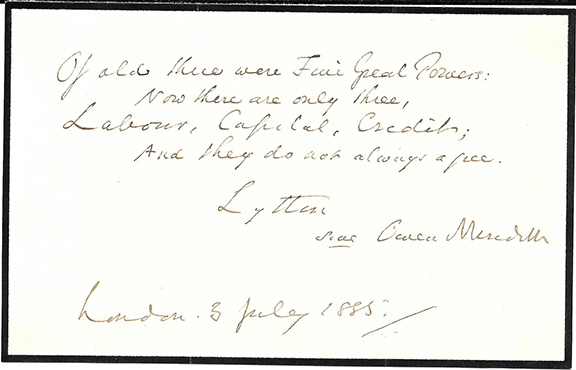 Of old there were Five Great Powers:
Now there are only three,
Labour, Capital, Credit;
And they do not always agree.
Lytton
Owen Meredith
London. 3 July 1885.